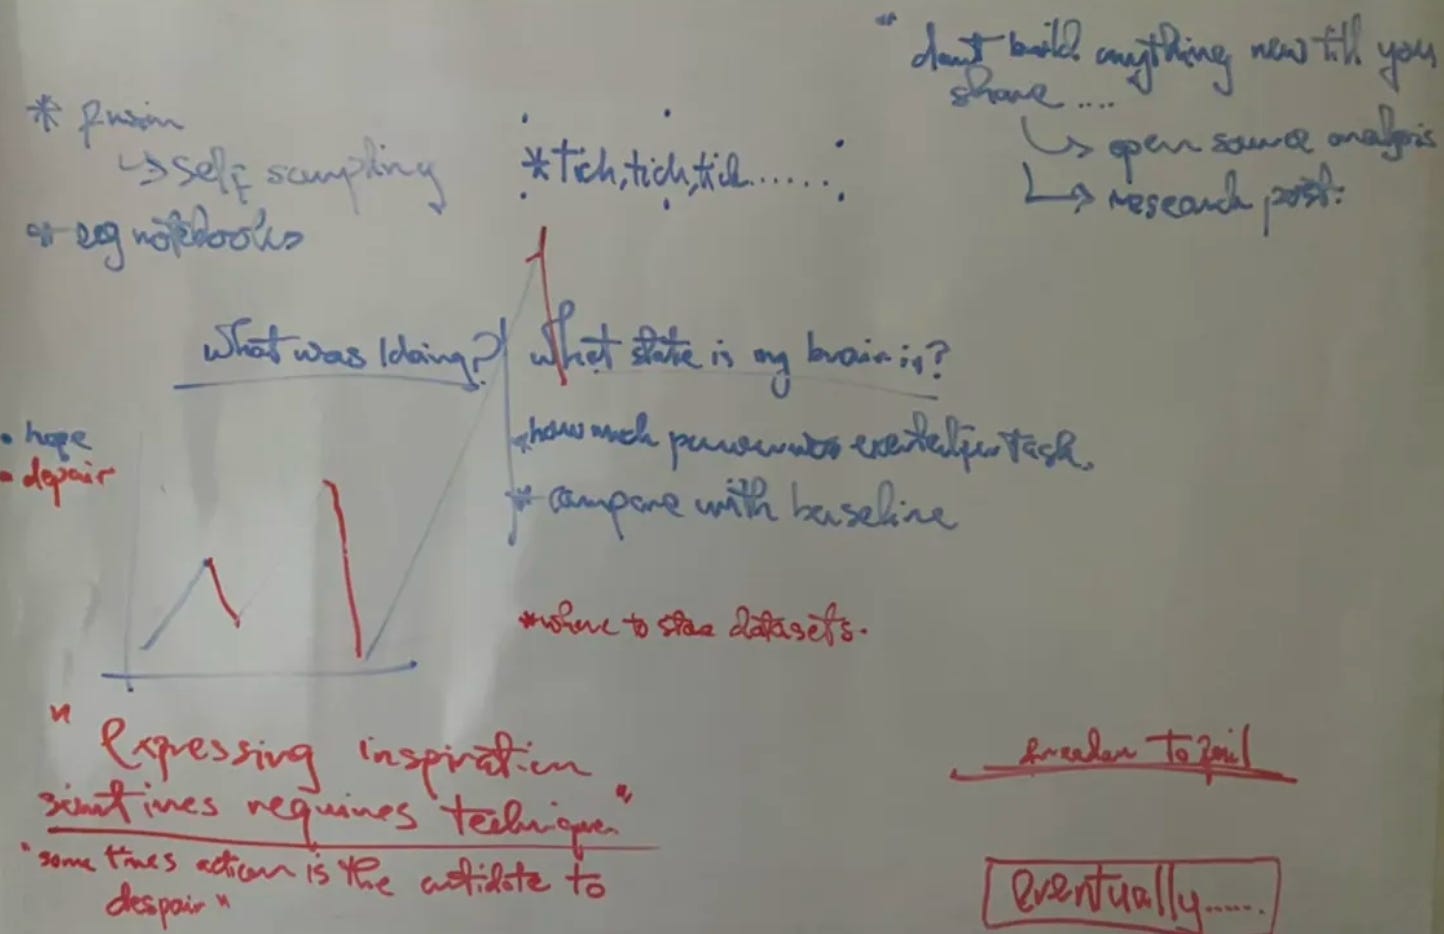 " dont build anything new till you
share ....
→ open source analysis
→ research post.
*
→ self sampling
* eeg notebooks
* tick, tick, tick......
What was I doing?
What state is my brain in?
* how much power was exerted per task.
* compare with baseline
• hope
- depair
* where to store datasets.
" Expressing inspiration
requires technique "
"some times action is the antidote to
despair"
freedom to fail
eventually......